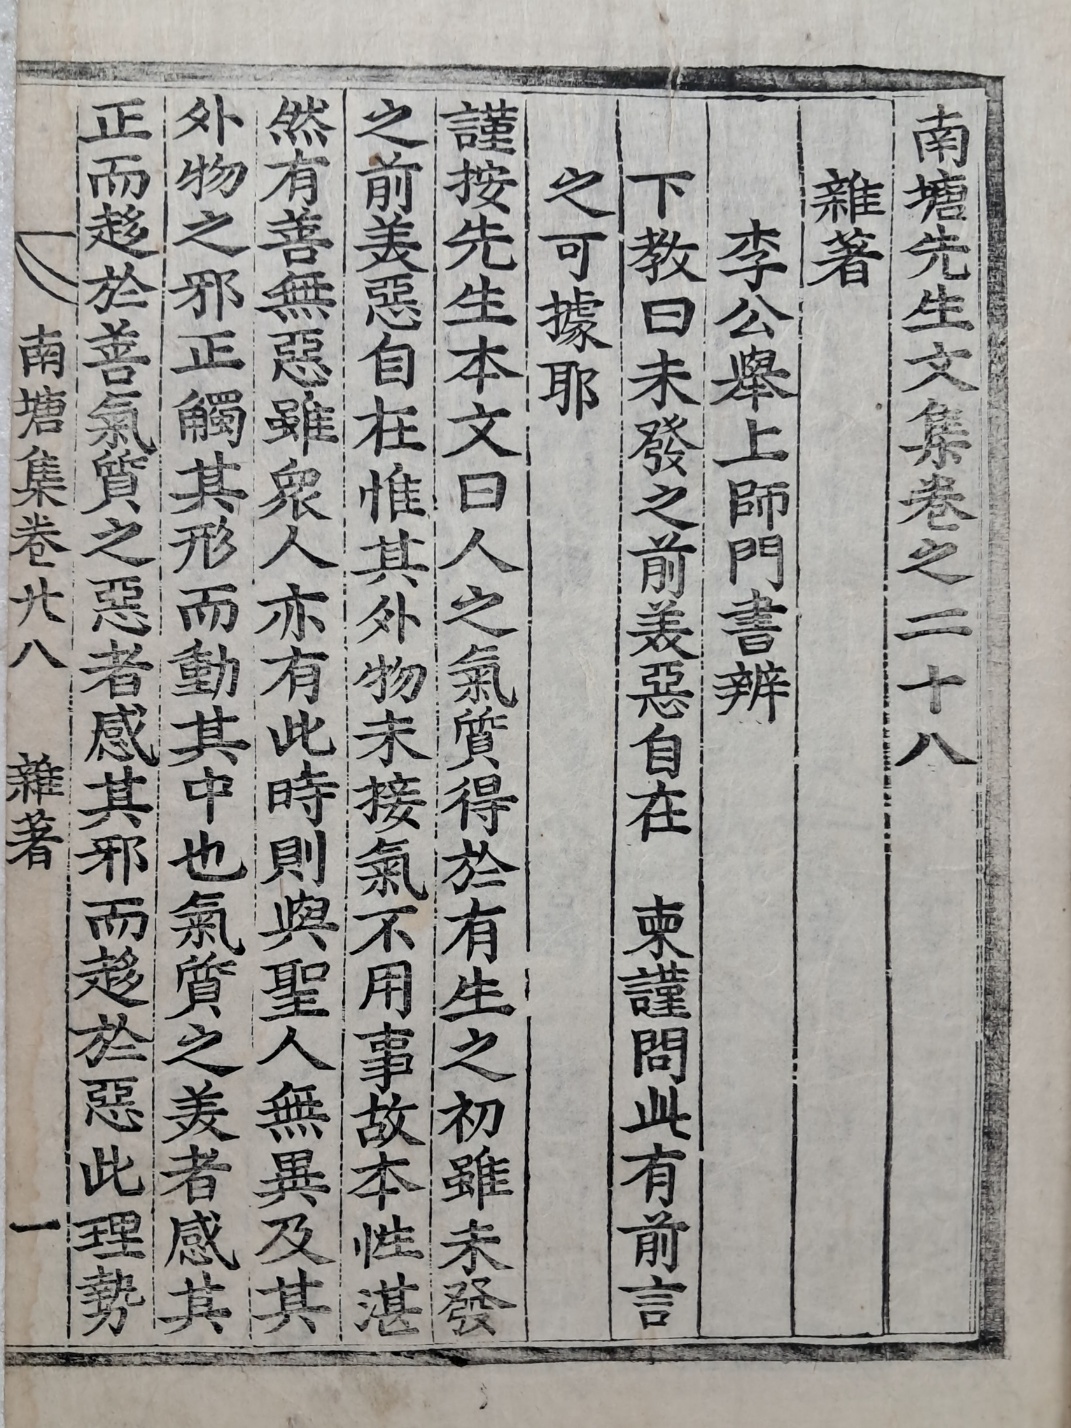 南塘先生文集卷之二十八
雜著
李公舉上師門書辨
下教曰未發之前美惡自在　柬謹問此有前言
之可據耶
謹按先生本文曰人之氣質得於有生之初雖未發
之前美惡自在惟其外物未接氣不用事故本性湛
然有善無惡雖衆人亦有此時則與聖人無異及其
外物之邪正觸其形而動其中也氣質之美者感其
正而趍於善氣質之惡者感其邪而趍於惡此理勢
南塘集卷廿八　雜著　一